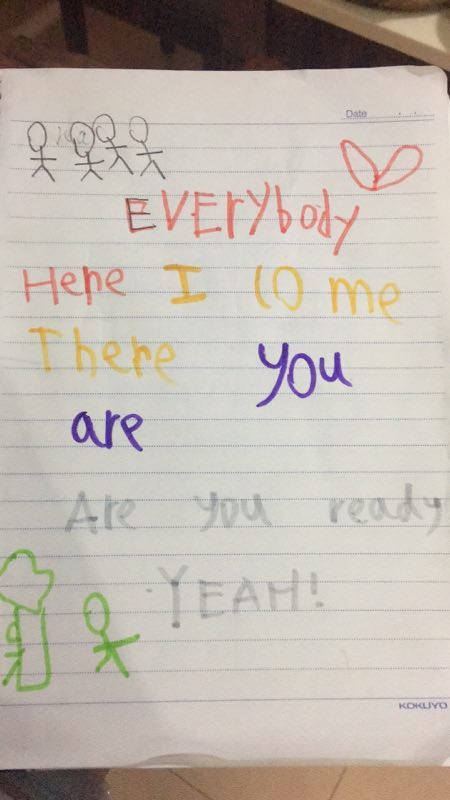 Date
EVErybody
Here I come
There you
are
Are you ready
YEAH!
KOKUYO